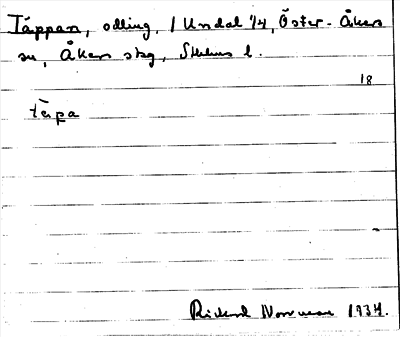 Täppan, odling, 1 Undal 1/4, Öster-Åkers
sn, Åkers skg, Sthlms l.
18
tɛ̀pa
Rickard Norrman 1934.